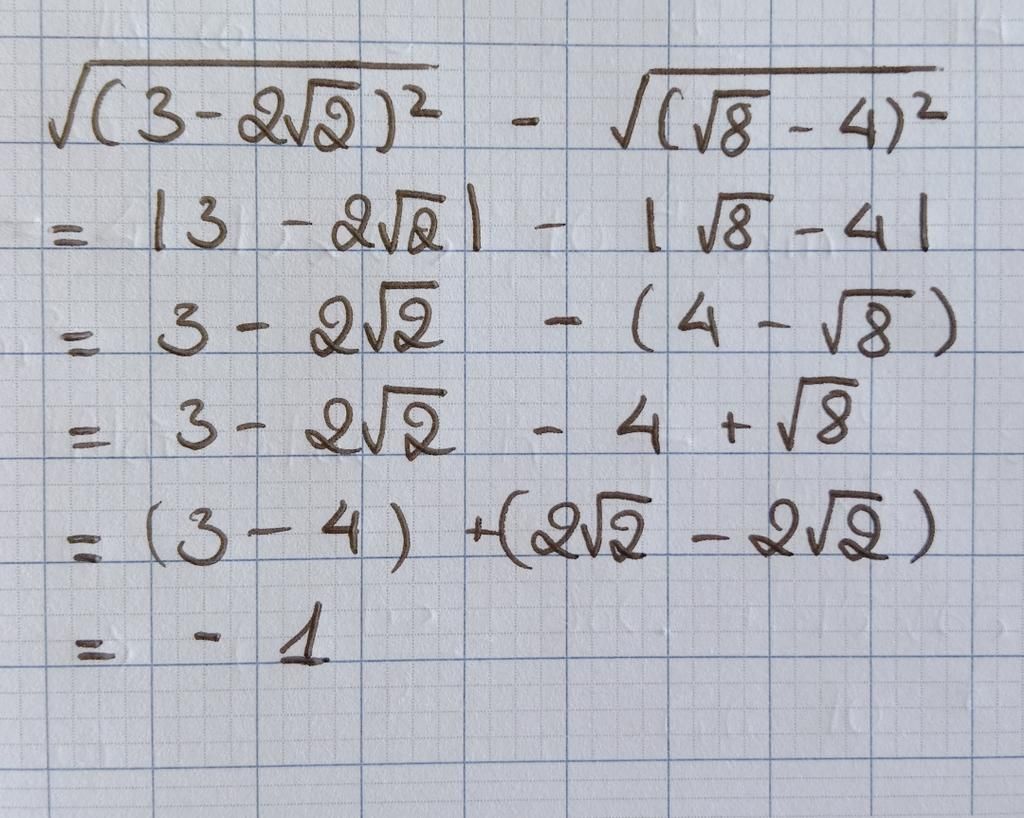 √(3 - 2√2)² - √(√8 - 4)²
= |3 - 2√2| - |√8 - 4|
= 3 - 2√2 - (4 - √8)
= 3 - 2√2 - 4 + √8
= (3 - 4) + (2√2 - 2√2)
= - 1